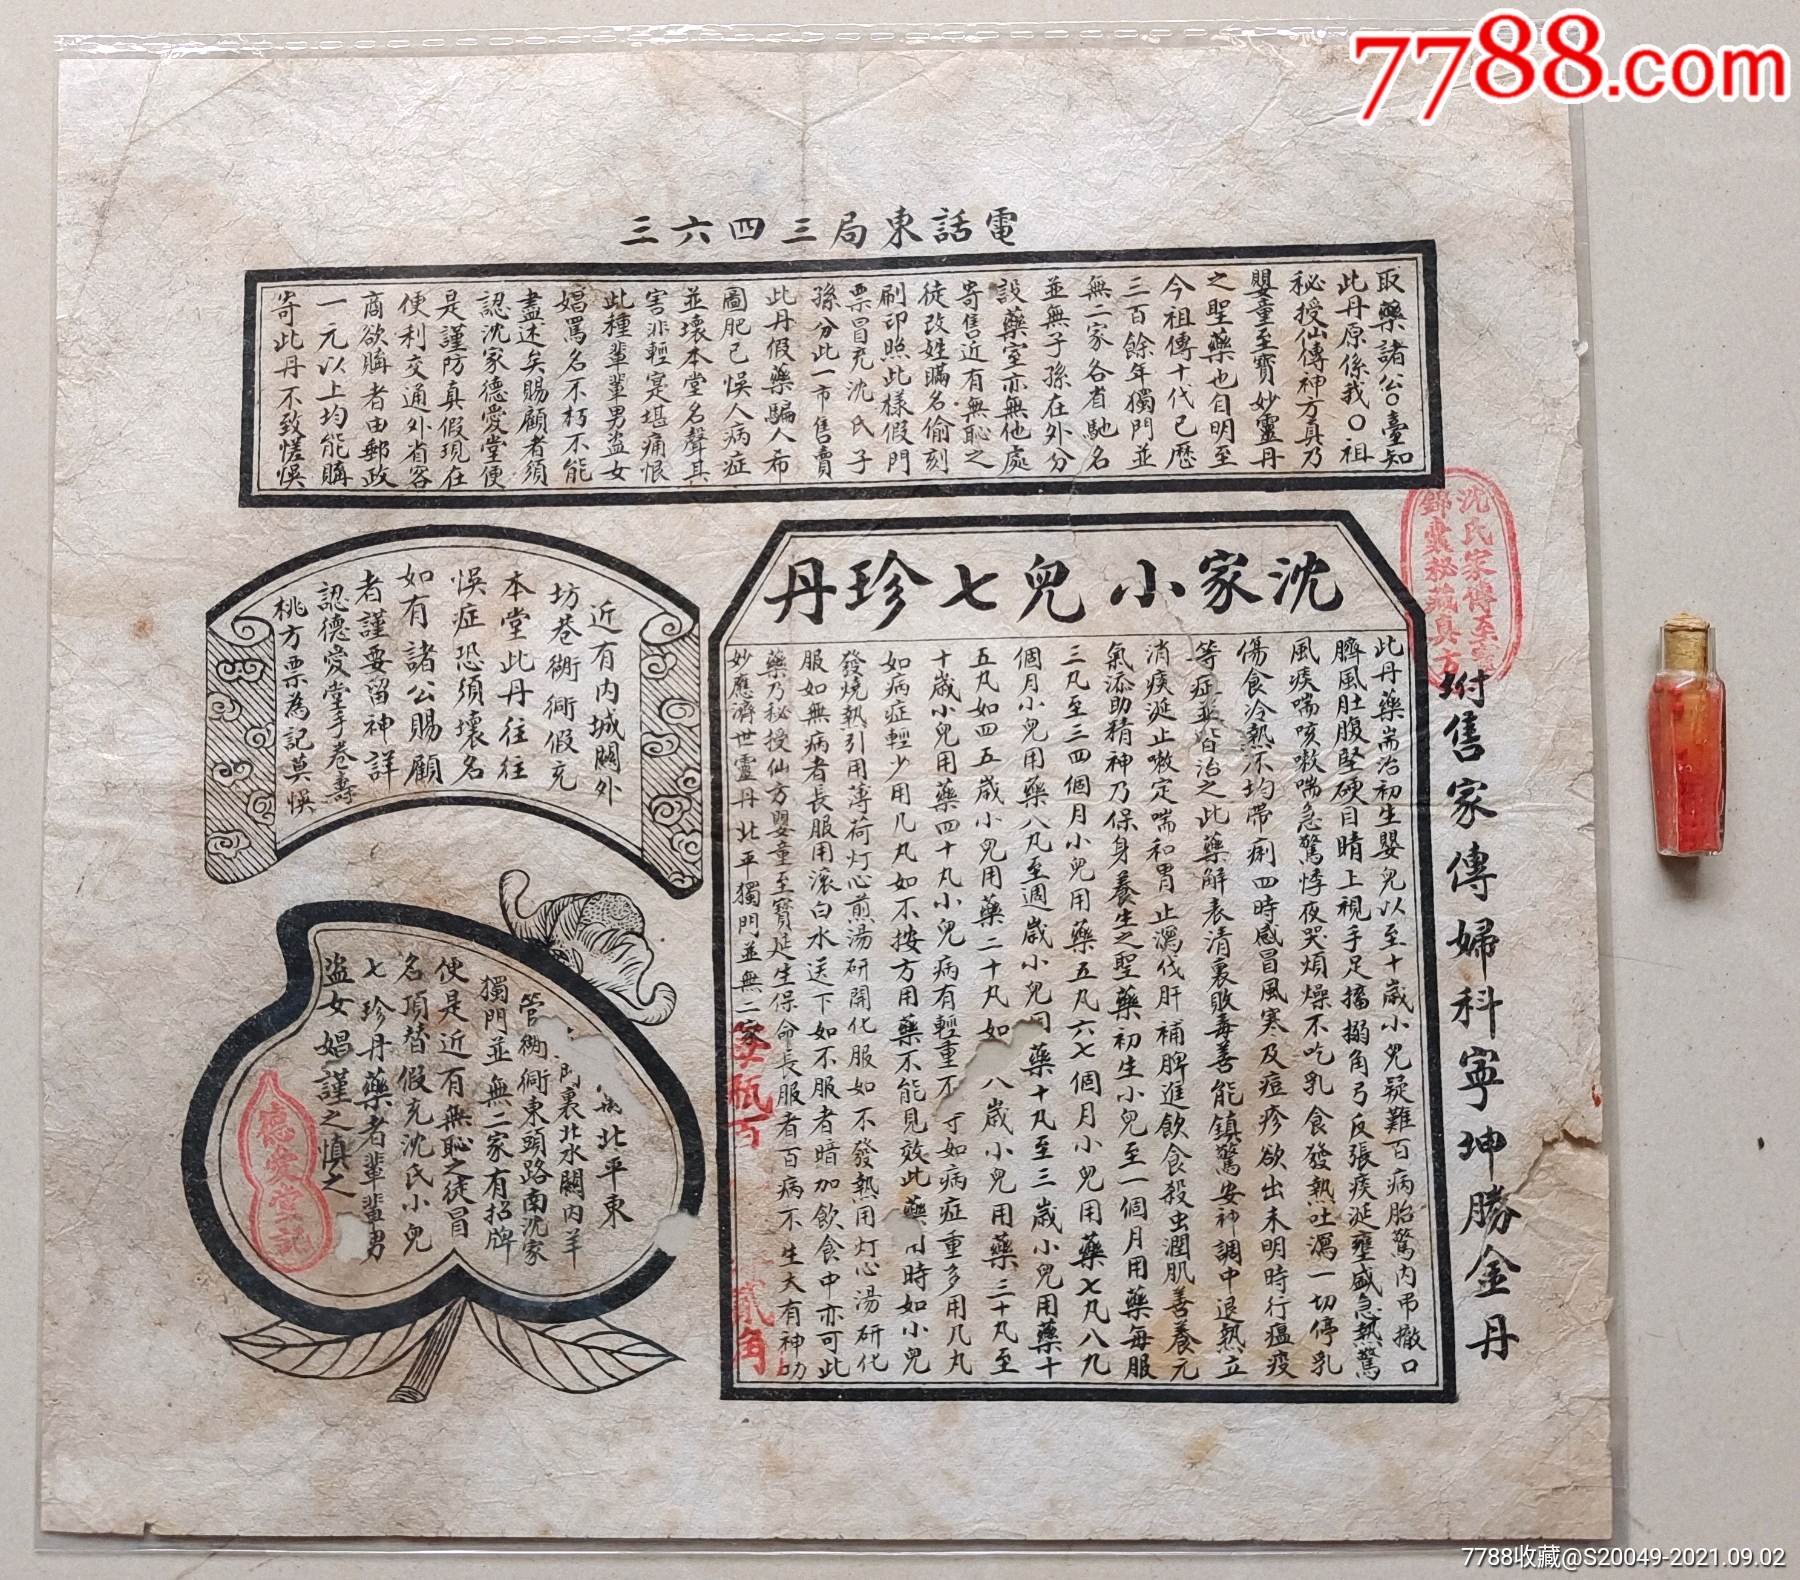 7788.com
電話東局三四六三
取藥諸公臺知
此丹原係我〇祖
秘授仙傳神方真乃
嬰童至寶妙靈丹
之聖藥也自明至
今祖傳十代已歷
三百餘年獨門並
無二家各省馳名
並無子孫在外分
設藥室亦無他處
寄售近有無恥之
徒改姓瞞名偷刻
刷印照此樣假門
票冒充沈氏子
孫分此一市售賣
此丹假藥騙人希
圖肥己悞人病症
並壞本堂名聲其
害非輕寔堪痛恨
此種輩輩男盗女
娼罵名不朽不能
盡述矣賜顧者須
認沈家德愛堂便
是謹防真假現在
便利交通外省客
商欲購者由郵政
一元以上均能購
寄此丹不致悞
沈氏家傳至寶
錦囊秘藏真方
坿售家傳婦科寧坤勝金丹
沈家小兒七珍丹
此丹藥耑治初生嬰兒以至十歲小兒疑難百病胎驚內吊撤口
臍風肚腹堅硬目睛上視手足搐搦角弓反張痰涎壅盛急熱驚
風痰喘咳嗽喘急驚悸夜哭煩燥不吃乳食發熱吐瀉一切停乳
傷食冷熱不均帶痢四時感冒風寒及痘疹欲出未明時行瘟疫
等症並皆治之此藥解表清裏敗毒善能鎮驚安神調中退熱立
消痰涎止嗽定喘和胃止瀉伐肝補脾進飲食殺虫潤肌善養元
氣添助精神乃保身養生之聖藥初生小兒至一個月用藥每服
三凡至三四個月小兒用藥五凡六七個月小兒用藥七凡八九
個月小兒用藥八凡至週歲小兒用藥十凡至三歲小兒用藥十
五凡如四五歲小兒用藥二十凡如八歲小兒用藥三十凡至
十歲小兒用藥四十凡小兒病有輕重不寸如病症重多用几丸
如病症輕少用几丸如不按方用藥不能見效此藥用時如小兒
發燒熱引用薄荷灯心煎湯研開化服如不發熱用灯心湯研化
服如無病者長服用滾白水送下如不服者暗加飲食中亦可此
藥乃秘授仙方嬰童至寶延生保命長服者百病不生大有神功
妙應濟世靈丹北平獨門並無二家
每瓶百
貳角
近有內城關外
坊巷衚衕假充
本堂此丹往往
悞症恐須壞名
如有諸公賜顧
者謹要留神詳
認德愛堂手卷壽
桃方票為記莫悞
北平東
門裏北水關內羊
管衚衕東頭路南沈家
獨門並無二家有招牌
便是近有無恥之徒冒
名頂替假充沈氏小兒
七珍丹藥者輩輩男
盗女娼謹之慎之
德愛堂記
7788收藏@S20049-2021.09.02